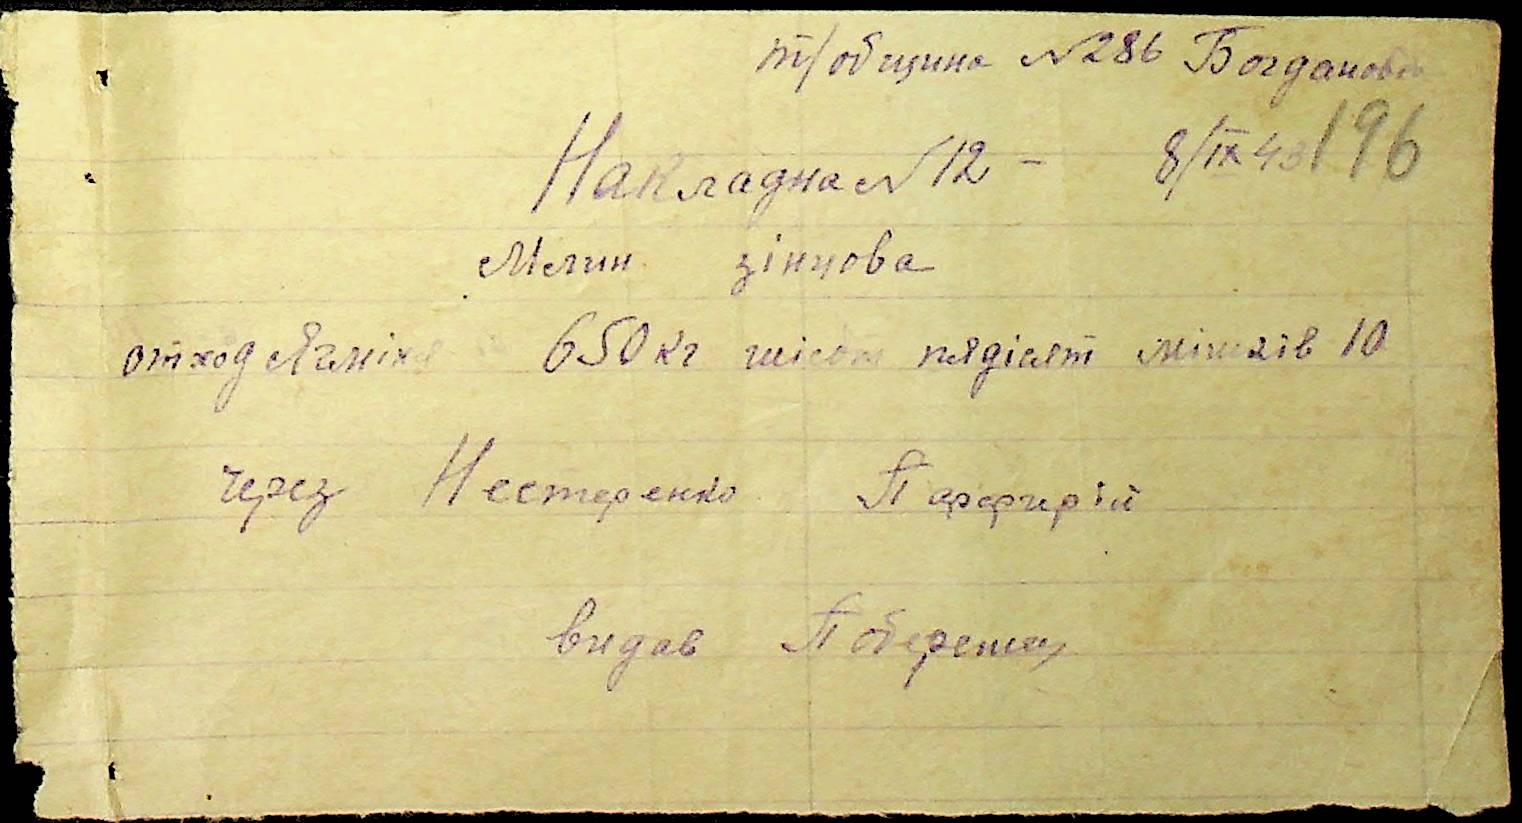 т/община №286 Богданов
Накладна №12 – 8/IX 43 196
Млин зінцова
отход Ячміня 650 кг шісот пядісят мішків 10
через Нестеренко Парфирій
видав